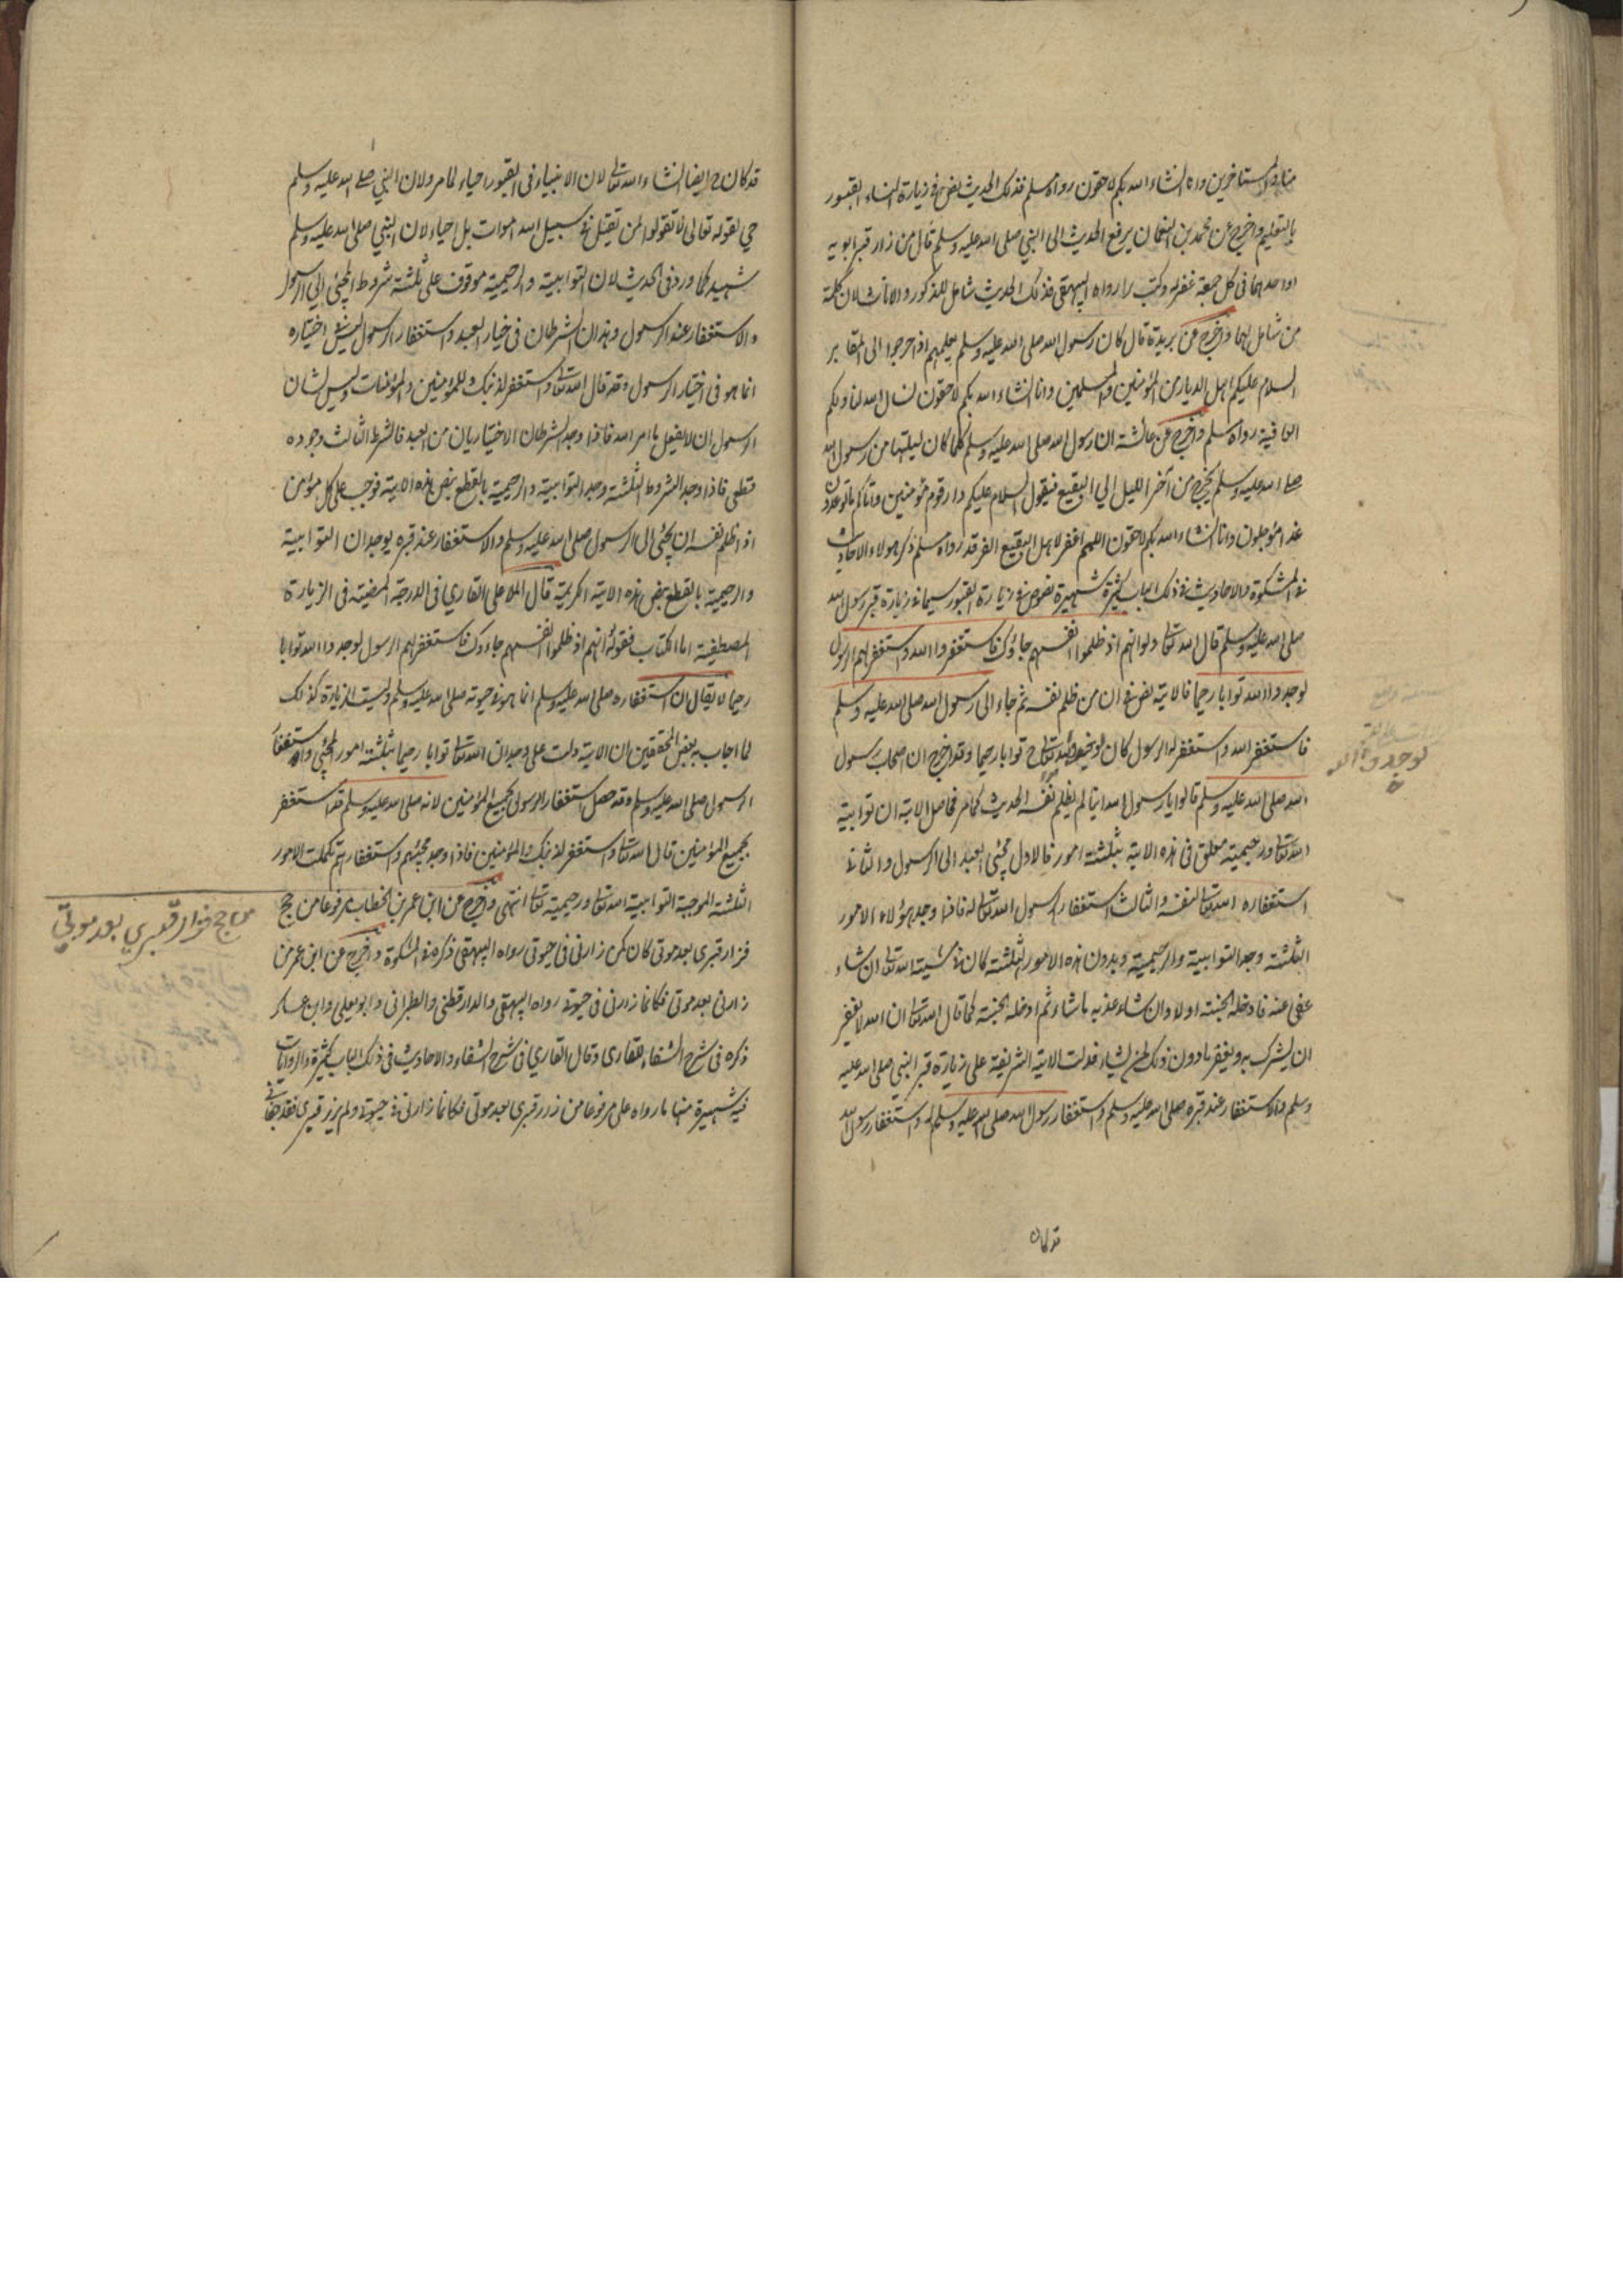 منا والمستأخرين وانا انشاء الله بكم لاحقون رواه مسلم فذلك الحديث نص في زيارة النساء القبور
بالتعليم واخرج عن محمد بن النعمان يرفع الحديث الى النبي صلى الله عليه وسلم قال من زار قبر ابويه
او احدهما في كل جمعة غفر له وكتب برا رواه البيهقي فذلك الحديث شامل للذكور والاناث لان كلمة
من شامل لهما واخرج عن بريدة قال كان رسول الله صلى الله عليه وسلم يعلمهم اذا خرجوا الى المقابر
السلام عليكم اهل الديار من المؤمنين والمسلمين وانا انشاء الله بكم لاحقون نسال الله لنا ولكم
العافية رواه مسلم واخرج عن عائشة ان رسول الله صلى الله عليه وسلم كلما كان ليلتها من رسول الله
صلى الله عليه وسلم يخرج من آخر الليل الي البقيع فيقول السلام عليكم دار قوم مؤمنين واتاكم ما توعدون
غدا مؤجلون وانا انشاء الله بكم لاحقون اللهم اغفر لاهل البقيع الغرقد رواه مسلم ذكر هولاء الاحاديث
في المشكوة والاحاديث في ذلك الباب كثيرة شهيرة نصوص في زيارة القبور سيما في زيارة قبر رسول الله
صلى الله عليه وسلم قال الله تعالى ولو انهم اذ ظلموا انفسهم جاؤك فاستغفروا الله واستغفر لهم الرسول
لوجدوا الله توابا رحيما فالاية نص في ان من ظلم نفسه ثم جاء الى رسول الله صلى الله عليه وسلم
فاستغفر الله واستغفر له الرسول كان توابا رحيما وقد اخرج ان اصحاب رسول
لوجدوا الله
الله صلى الله عليه وسلم قالوا يا رسول الله اينا لم يظلم نفسه الحديث كما مر فحاصل الاية ان توابية
الله تعالى ورحيمية معلق في هذه الاية بثلثة امور فالاول مجئي العبد الى الرسول والثاني
استغفاره الله تعالى لنفسه والثالث استغفار رسول الله تعالى له فاذا وجد هؤلاء الامور
الثلثة وجد التوابية والرحيمية وبدون هذه الامور الثلثة كان في مشيئة الله تعالى ان شاء
عفى عنه فادخله الجنة اولا وان شاء عذبه ما شاء ثم ادخله الجنة كما قال الله تعالى ان الله لا يغفر
ان يشرك به ويغفر ما دون ذلك لمن يشاء فدلت الاية الشريفة على زيارة قبر النبي صلى الله عليه
وسلم والاستغفار عند قبره صلى الله عليه وسلم واستغفار رسول الله صلى الله عليه وسلم له واستغفار رسول الله
قد كان
قد كان ح ايضا انشاء الله تعالى لان الانبياء في القبور احياء لما مر ولان النبي صلى الله عليه وسلم
حي لقوله تعالى لا تقولوا لمن يقتل في سبيل الله اموات بل احياء لان النبي صلى الله عليه وسلم
شهيد كما ورد في الحديث لان التوابية والرحيمية موقوف على ثلثة شروط المجئي الي الرسول
والاستغفار عند الرسول وهذان الشرطان في خيار العبد واستغفار الرسول ليس في اختياره
انما هو في اختيار الرسول وقد قال الله تعالى واستغفر لذنبك وللمؤمنين والمؤمنات وليس لشان
الرسول ان لا يفعل ما امر الله فاذا وجد الشرطان الاختياريان من العبد فالشرط الثالث وجوده
قطعي فاذا وجد الشروط الثلثة وجد التوابية والرحيمية بالقطع بنص هذه الاية فوجب على كل مؤمن
اذا ظلم نفسه ان يجئي الى الرسول صلى الله عليه وسلم والاستغفار عند قبره يوجدان التوابية
والرحيمية بالقطع بنص هذه الاية الكريمة قال الملا على القاري في الدرجة المضيئة في الزيارة
المصطفية اما الكتاب فقوله انهم اذ ظلموا انفسهم جاءوك فاستغفر لهم الرسول لوجدوا الله توابا
رحيما لا يقال ان استغفاره صلى الله عليه وسلم انما هو في حيوته صلى الله عليه وسلم وليست الزيارة كذلك
لما اجاب به بعض المحققين ان الاية دلت على وجدان الله تعالى توابا رحيما بثلثة امور المجئي واستغفار
الرسول صلى الله عليه وسلم وقد حصل استغفار الرسول لجميع المؤمنين لانه صلى الله عليه وسلم قد استغفر
لجميع المؤمنين قال الله تعالى واستغفر لذنبك وللمؤمنين فاذا وجد مجيئهم واستغفارهم تكملت الامور
الثلثة الموجبة لتوابية الله تعالى ورحيمية تعالى انتهى واخرج عن ابن عمر بن الخطاب مرفوعا من حج
من حج فزار قبري بعد موتي
فزار قبري بعد موتي كان كمن زارني في حيوتي رواه البيهقي ذكره في المشكوة واخرج عن ابن عمر من
زارني بعد موتي فكانما زارني في حيوتي رواه البيهقي والدارقطني والطبراني وابو يعلي وابن عساكر
ذكره في شرح الشفاء للقاري وقال القاري في شرح الشفاء والاحاديث في ذلك الباب كثيرة والروايات
فيه شهيرة منها ما رواه علي مرفوعا من زار قبري بعد موتي فكانما زارني في حيوتي ولم يزر قبري فقد جفاني